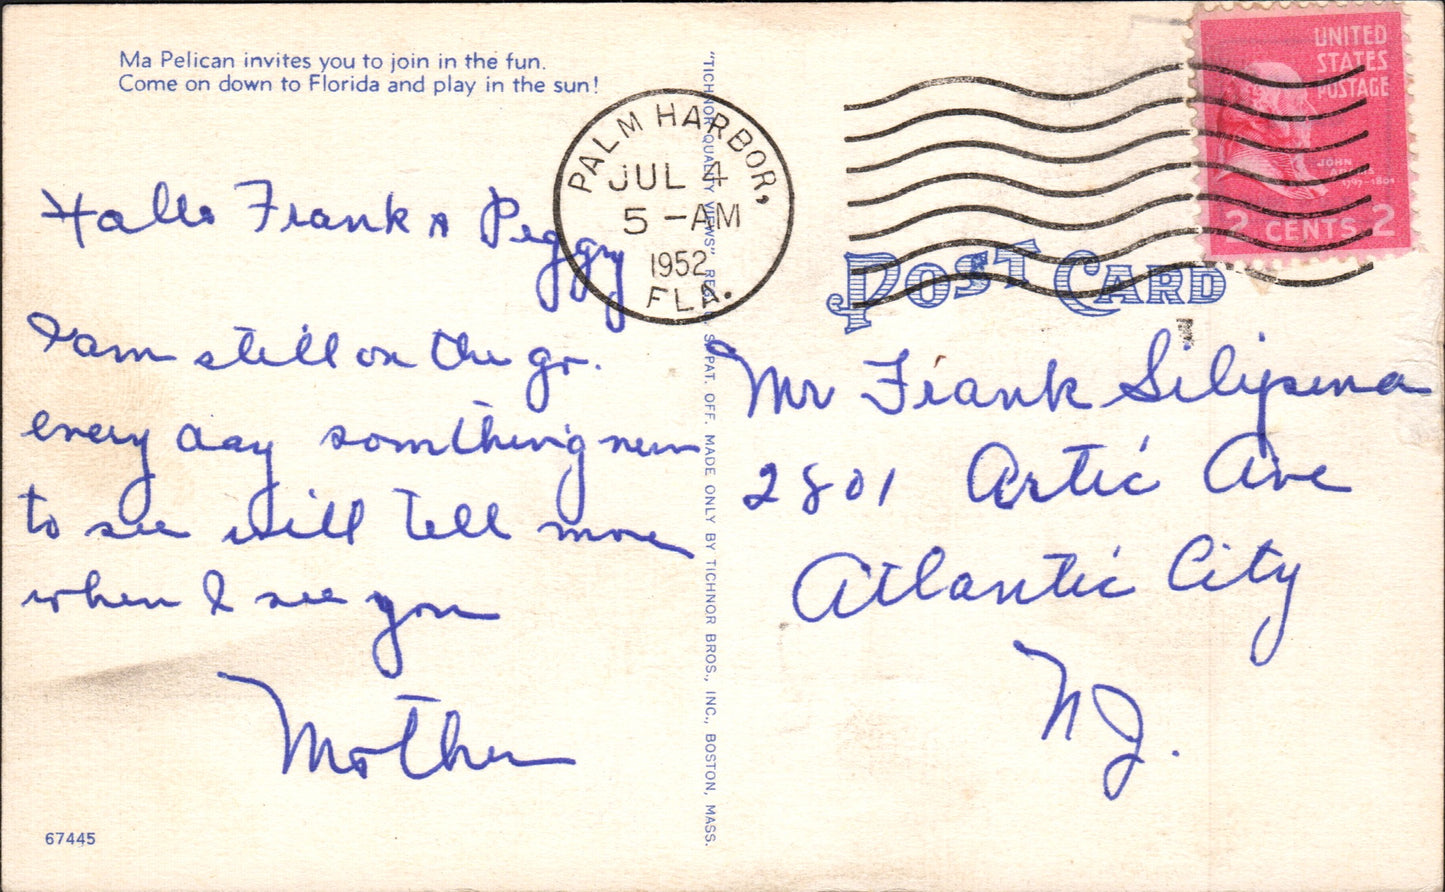 Ma Pelican invites you to join in the fun.
Come on down to Florida and play in the sun!
Hallo Frank & Peggy
I am still on the go.
every day somthing new
to see will tell more
when I see you
Mother
67445
"TICHNOR QUALITY VIEWS" REG. U. S. PAT. OFF. MADE ONLY BY TICHNOR BROS., INC., BOSTON, MASS.
PALM HARBOR,
JUL 4
5 -AM
1952
FLA.
UNITED
STATES
POSTAGE
JOHN
1797-1801
2 CENTS 2
POST CARD
Mr Frank Silipena
2801 Artic Ave
Atlantic City
NJ.